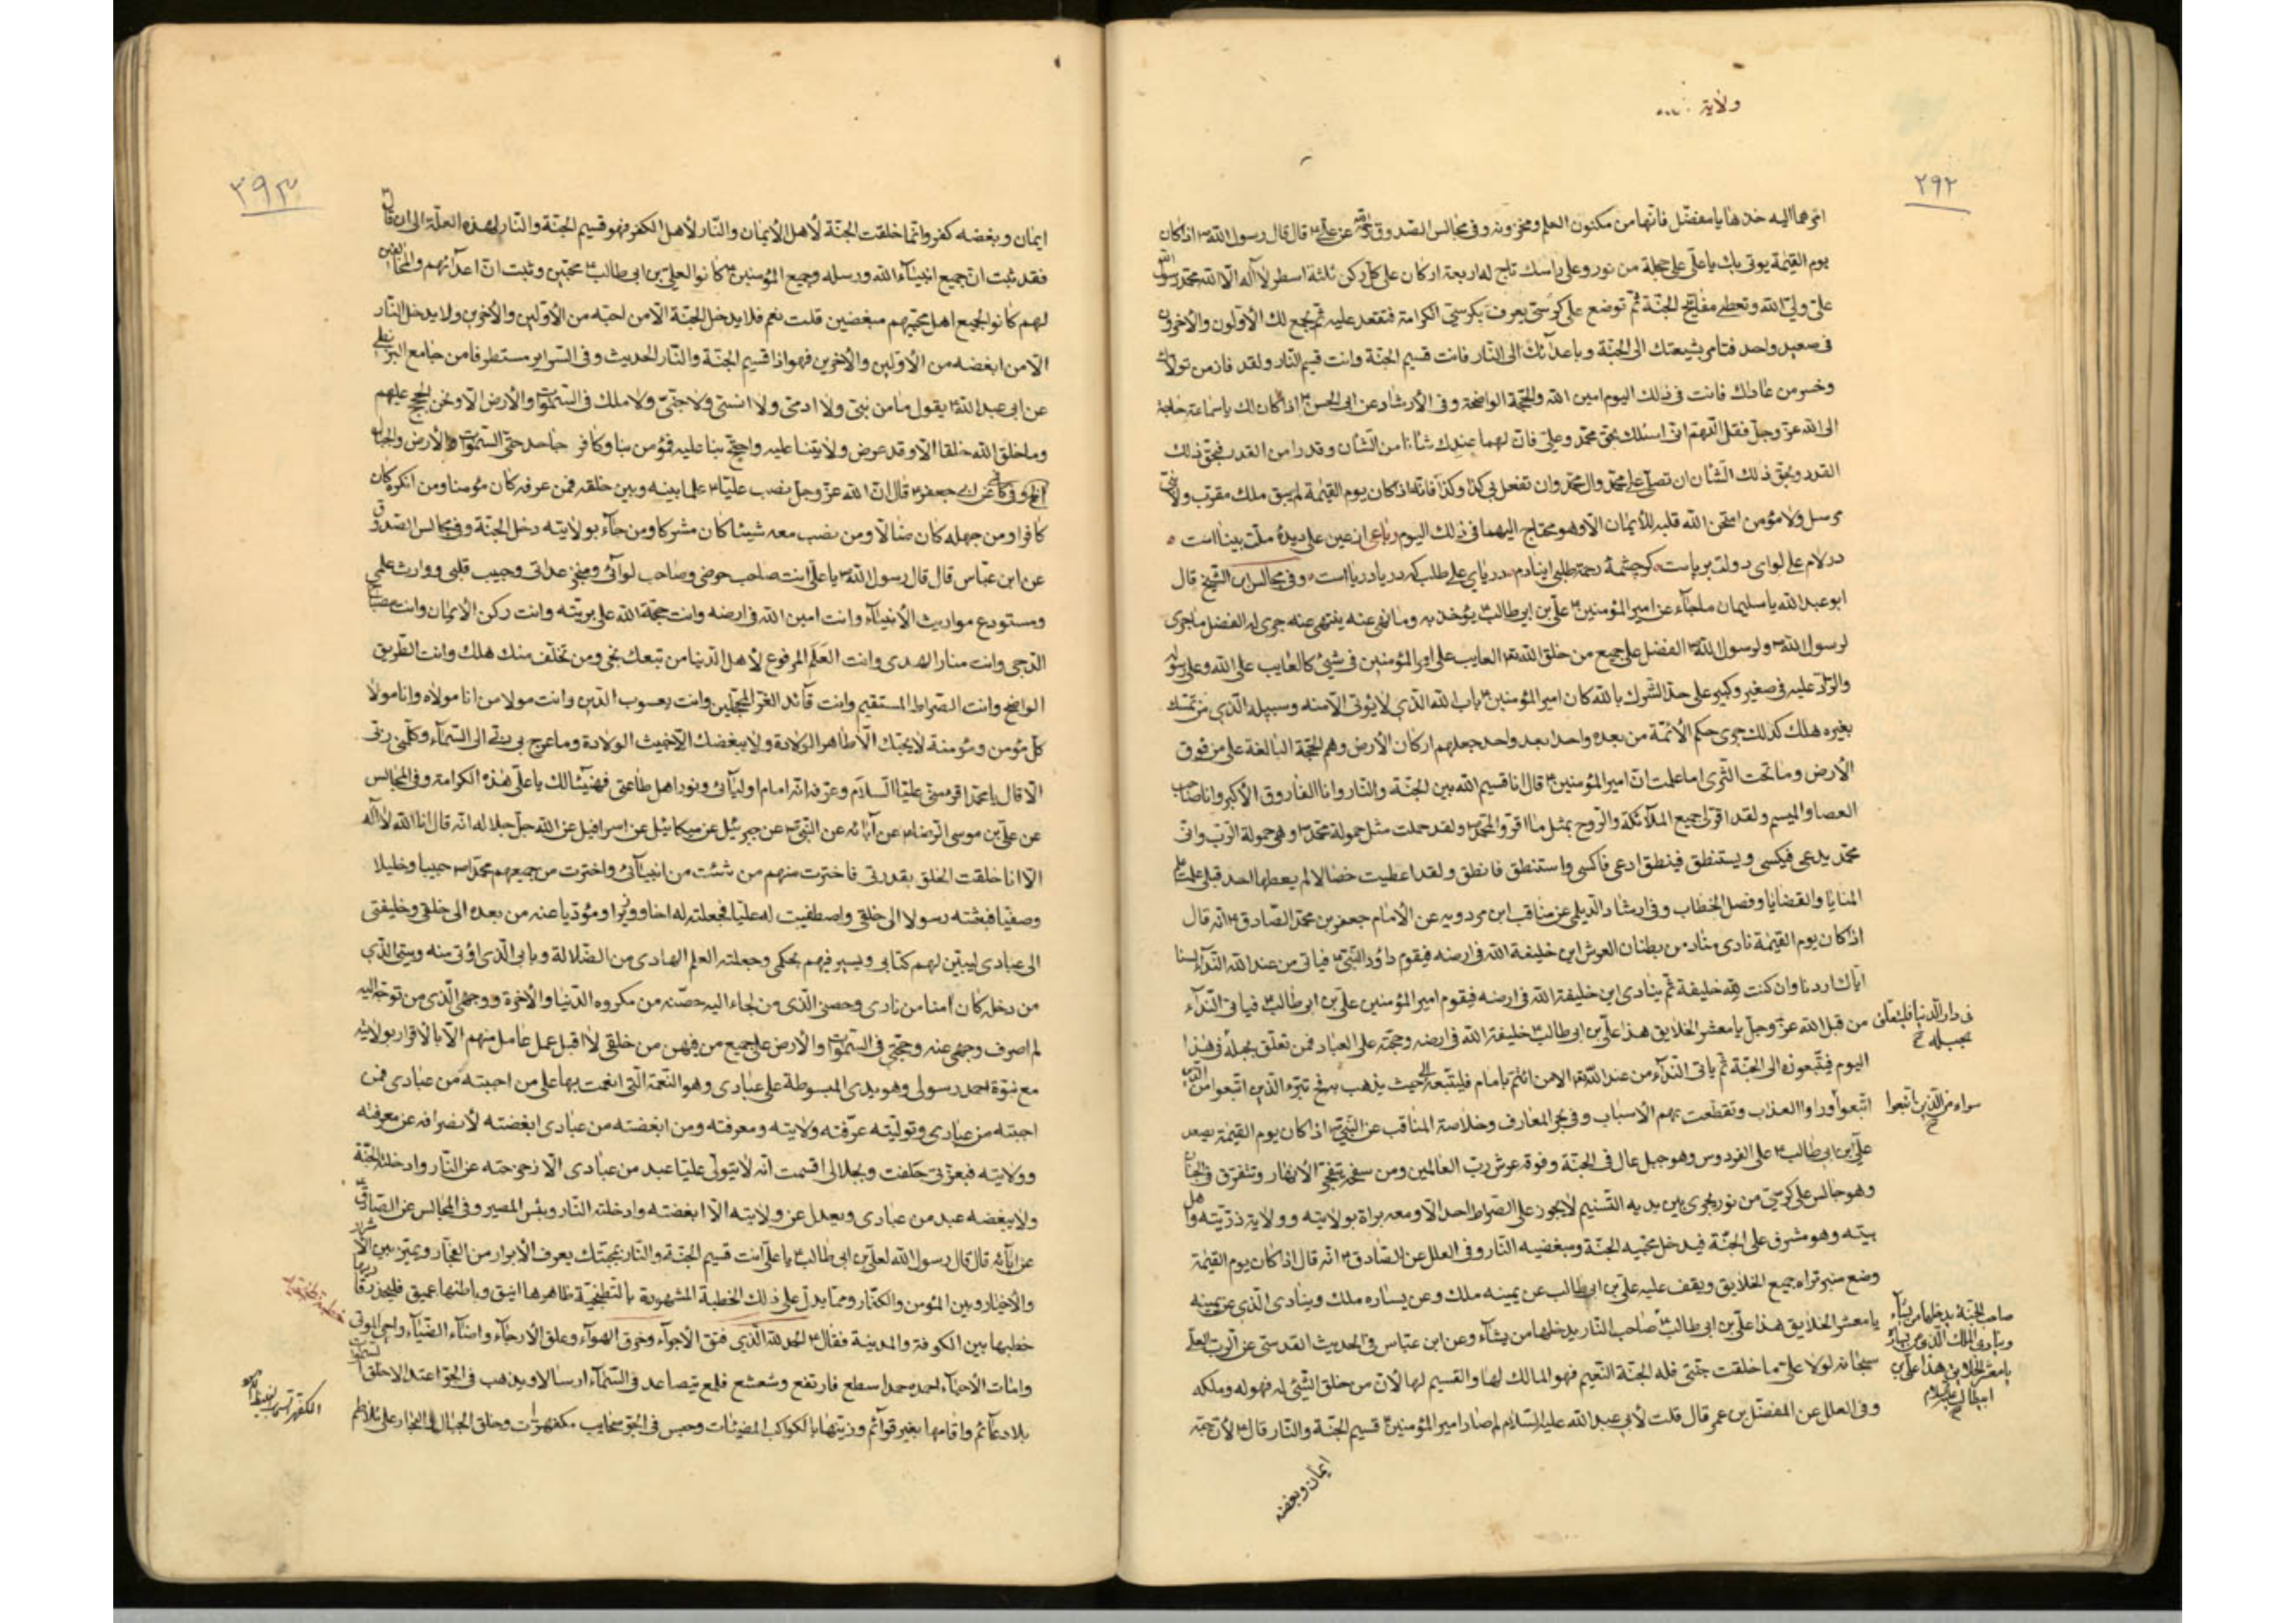 ولایة
۲۹۲
امرهما الیه خذها یا مفضّل فانّها من مکنون العلم و مخزونه و فی مجالس الصّدوق عن علیّ قال قال رسول الله اذا کان
یوم القیٰمة یوتی بك یا علی علی عجلة من نور و علی راسك تاج له اربعة ارکان علی کلّ رکن ثلثة اسطر لا اله الّا الله محمّد رسول الله
علیّ ولیّ الله و تعطی مفاتیح الجنّة ثمّ توضع علی کرسیّ یعرف بکرسیّ الکرامة فتقعد علیه ثمّ یجمع لك الأوّلون والأخرون
فی صعید واحد فتامر بشیعتك الی الجنّة و باعدآئك الی النّار فانت قسیم الجنّة وانت قسیم النّار و لقد فاز من تولاك
و خسر من عاداك فانت فی ذلك الیوم امین الله و الحجّة الواضحة و فی الأرشاد عن ابی الحسن اذا کان لك یا سماعة حاجة
الی الله عزّ وجلّ فقل اللّهمّ انّی اسئلك بحقّ محمّد و علیّ فانّ لهما عندك شانا من الشّان و قدرا من القدر فبحقّ ذلك
القدر و بحقّ ذلك الشّان ان تصلّی علی محمّد وال محمّد وان تفعل بی کذا و کذا فانّه اذا کان یوم القیٰمة لم یبق ملك مقرّب ولا نبیّ
مرسل ولا مؤمن امتحن الله قلبه للأیمان الّا وهو محتاج الیهما فی ذلك الیوم رباعی از عین علی دیدهٔ ملّت بیناست
در لام علی لوای دولت برپاست کر چشمهٔ رحمة طلبی اینادم دریای علی طلب که دریا دریاست و فی مجالس ابن الشّیخ قال
ابو عبد الله یا سلیمان ما جآء عن امیر المؤمنین علیّ بن ابی طالب یؤخذ به وما نهی عنه ینتهی عنه جری له الفضل ما جری
لرسول الله ولرسول الله الفضل علی جمیع من خلق الله العایب علی امیر المؤمنین فی شیئ کالعایب علی الله وعلی رسوله
والرّادّ علیه فی صغیر وکبیر علی حدّ الشّرك بالله کان امیر المؤمنین باب الله الّذی لا یؤتی الّا منه وسبیله الّذی من تمسّك
بغیره هلك کذلك جری حکم الأئمّة من بعده واحدا بعد واحد جعلهم ارکان الأرض وهم الحجّة البالغة علی من فوق
الأرض وما تحت الثّری اما علمت انّ امیر المؤمنین قال انا قسیم الله بین الجنّة والنّار وانا الفاروق الأکبر وانا صاحب
العصا والمیسم ولقد اقرّ لی جمیع الملآئکة والرّوح بمثل ما اقرّوا لمحمّد ولقد حملت مثل حمولة محمّد وهی حمولة الرّبّ وانّ
محمّد یدعی فیکسی و یستنطق فینطق ادعی فاکسی واستنطق فانطق ولقد اعطیت خصالا لم یعطها احد قبلی علمت علم
المنایا والقضایا وفصل الخطاب و فی ارشاد الدّیلمی عن مناقب ابن مردویه عن الأمام جعفر بن محمّد الصّادق انّه قال
اذا کان یوم القیٰمة نادی مناد من بطنان العرش این خلیفة الله فی ارضه فیقوم داود النّبیّ فیاتی من عند الله النّدآء لسنا
ایّاك اردنا وان کنت لله خلیفة ثمّ ینادی این خلیفة الله فی ارضه فیقوم امیر المؤمنین علیّ بن ابی طالب فیاتی النّدآء
من قبل الله عزّ وجلّ یا معشر الخلایق هذا علیّ بن ابی طالب خلیفة الله فی ارضه وحجّته علی العباد فمن تعلّق بحبله فی هذا
فی دار الدّنیا فلیتعلّق
بحبله خ
الیوم فیتّبعونه الی الجنّة ثمّ یاتی النّدآء من عند الله الا من ائتمّ بامام فلیتّبعه الی حیث یذهب به فح تبرّء الّذین اتّبعوا من الّذین
اتّبعوا وراوا العذاب وتقطّعت بهم الأسباب و فی بحر المعارف وخلاصة المناقب عن النّبیّ اذا کان یوم القیٰمة یصعد
علیّ بن ابی طالب علی الفردوس وهو جبل عال فی الجنّة وفوقه عرش ربّ العالمین ومن سفحه یتفجّر الأنهار وتتفرّق فی الجنان
وهو جالس علی کرسیّ من نور یجری بین یدیه التّسنیم لا یجوز علی الصّراط احد الّا ومعه براة بولایته وولایة ذرّیّته واهل
بیته وهو مشرف علی الجنّة فیدخل محبّیه الجنّة ومبغضیه النّار و فی العلل عن الصّادق انّه قال اذا کان یوم القیٰمة
وضع منبر تراه جمیع الخلایق ویقف علیه علیّ بن ابی طالب عن یمینه ملك وعن یساره ملك وینادی الّذی عن یمینه
یا معشر الخلایق هذا علیّ بن ابی طالب صاحب النّار یدخلها من یشآء وعن ابن عبّاس فی الحدیث القدسیّ عن الرّبّ العلیّ
صاحب الجنّة یدخلها من یشآء
وینادی الملك الّذی عن یساره
یا معشر الخلایق هذا علیّ بن
ابیطالب علیه السلام
سبحانه لولا علیّ ما خلقت جنّتی فله الجنّة النّعیم فهو المالك لها والقسیم لها لأنّ من خلق الشّیئ له فهو له وملکه
و فی العلل عن المفضّل بن عمر قال قلت لأبی عبد الله علیه السّلام لم صار امیر المؤمنین قسیم الجنّة والنّار قال لأنّ حبّه
ایمان وبغضه
۲۹۳
ایمان وبغضه کفر وانّما خلقت الجنّة لأهل الأیمان والنّار لأهل الکفر فهو قسیم الجنّة والنّار لهذه العلّة الی ان قال
فقد ثبت انّ جمیع انبیآء الله ورسله وجمیع المؤمنین کانوا لعلیّ بن ابی طالب محبّین وثبت انّ اعدآئهم والمخالفین
لهم کانوا لجمیع اهل محبّتهم مبغضین قلت نعم فلا یدخل الجنّة الّا من احبّه من الأوّلین والأخرین ولا یدخل النّار
الّا من ابغضه من الأوّلین والأخرین فهو اذا قسیم الجنّة والنّار الحدیث و فی السّرایر مستطرفا من جامع البزنطی
عن ابی عبد الله یقول ما من نبیّ ولا ادمیّ ولا انسیّ ولا جنّیّ ولا ملك فی السّمٰوات والأرض الّا ونحن الحجج علیهم
وما خلق الله خلقا الّا وقد عرض ولایتنا علیه واحتجّ بنا علیه فمؤمن بنا وکافر جاحد حتّی السّمٰوات والأرض والجبال
الخ و فی کا عن ابی جعفر قال انّ الله عزّ وجلّ نصب علیّا علما بینه وبین خلقه فمن عرفه کان مؤمنا ومن انکره کان
کافرا ومن جهله کان ضالّا ومن نصب معه شیئا کان مشرکا ومن جآء بولایته دخل الجنّة و فی مجالس الصّدوق
عن ابن عبّاس قال قال رسول الله یا علی انت صاحب حوضی وصاحب لوآئی ومنجز عداتی وحبیب قلبی ووارث علمی
ومستودع مواریث الأنبیآء وانت امین الله فی ارضه وانت حجّة الله علی بریّته وانت رکن الأیمان وانت مصباح
الدّجی وانت منار الهدی وانت العَلَم المرفوع لأهل الدّنیا من تبعك نجی ومن تخلّف منك هلك وانت الطّریق
الواضح وانت الصّراط المستقیم وانت قآئد الغرّ المحجّلین وانت یعسوب الدّین وانت مولا من انا مولاه وانا مولا
کلّ مؤمن ومؤمنة لا یحبّك الّا طاهر الولادة ولا یبغضك الّا خبیث الولادة وما عرج بی ربّی الی السّمآء وکلّمنی ربّی
الّا قال یا محمّد اقرء منّی علیّا السّلام وعرّفه انّه امام اولیآئی ونور اهل طاعتی فهنیئا لك یا علیّ هذه الکرامة و فی المجالس
عن علیّ بن موسی الرّضا عن آبائه عن النّبیّ عن جبرئیل عن میکائیل عن اسرافیل عن الله جلّ جلاله انّه قال انا الله لا اله
الّا انا خلقت الخلق بقدرتی فاخترت منهم من شئت من انبیآئی واخترت من جمیعهم محمّدا حبیبا وخلیلا
وصفیّا فبعثته رسولا الی خلقی واصطفیت له علیّا فجعلته له اخا ووزیرا ومؤدّیا عنه من بعده الی خلقی وخلیفتی
الی عبادی لیبیّن لهم کتابی ویسیر فیهم بحکمی وجعلته العلم الهادی من الضّلالة وبابی الّذی اؤتی منه وبیتی الّذی
من دخله کان آمنا من ناری وحصنی الّذی من لجاء الیه حصّنه من مکروه الدّنیا والأخرة ووجهی الّذی من توجّه الیه
لم اصرف وجهی عنه وحجّتی فی السّمٰوات والأرض علی جمیع من فیهنّ من خلقی لا اقبل عمل عامل منهم الّا بالأقرار بولایته
مع نبوّة احمد رسولی وهو یدی المبسوطة علی عبادی وهو النّعمة الّتی انعمت بها علی من احببته من عبادی فمن
احببته من عبادی وتولّیته عرّفته ولایته ومعرفته ومن ابغضته من عبادی ابغضته لأنصرافه عن معرفته
وولایته فبعزّتی حلفت وبجلالی اقسمت انّه لا یتولّی علیّا عبد من عبادی الّا زحزحته عن النّار وادخلته الجنّة
ولا یبغضه عبد من عبادی ویعدل عن ولایته الّا ابغضته وادخلته النّار وبئس المصیر و فی المجالس عن الصّادق
عن ابائه قال قال رسول الله لعلیّ بن ابی طالب یا علی انت قسیم الجنّة والنّار بمحبّتك یعرف الأبرار من الفجّار ویمیّز بین الأشرار
والأخیار وبین المؤمن والکفّار وممّا یدلّ علی ذلك الخطبة المشهورة بالتّطنجیّة ظاهرها انیق وباطنها عمیق فلیحذر قارئها
خطبها بین الکوفة والمدینة فقال الحمد لله الّذی فتق الأجوآء وخرق الهوآء وعلق الأرجآء واضآء الضّیآء واحیی الموتی
وامات الأحیآء احمده حمدا سطع فارتفع وشعشع فلمع یتصاعد فی السّمآء ارسالا ویذهب فی الجوّ اعتدالا خلق السّمٰوات
بلا دعآئم واقامها بغیر قوآئم وزیّنها بالکواکب المضیئات وحبس فی الجوّ سحایب مکفهرّات وخلق الجبال والبحار علی تلاطم